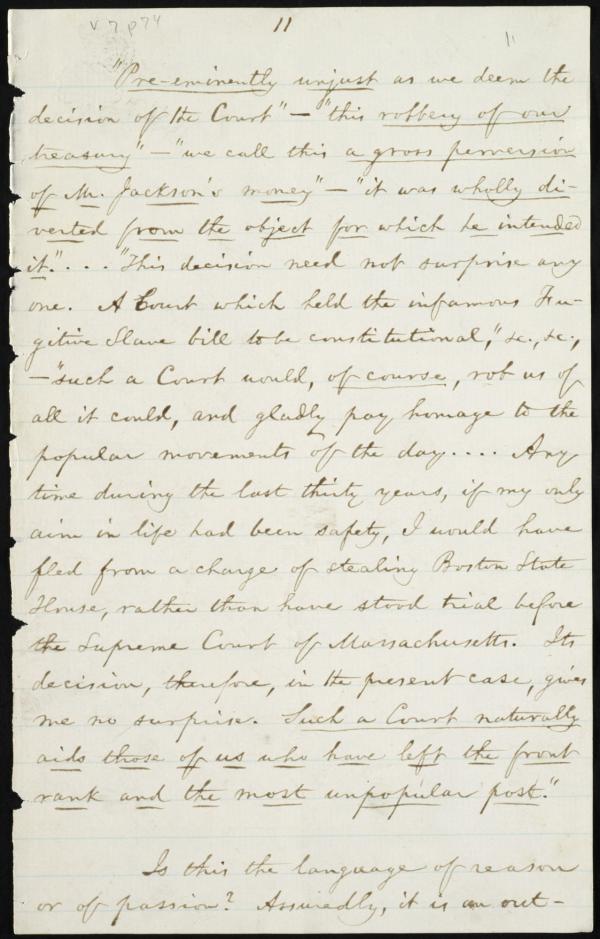 v. 7 p 74
11
11
"Pre-eminently unjust as we deem the
decision of the Court" — "this robbery of our
treasury" — "we call this a gross perversion
of Mr. Jackson's money" — "it was wholly di-
verted from the object for which he intended
it." . . . "This decision need not surprise any
one. A Court which held the infamous Fu-
gitive Slave bill to be constitutional," &c., &c.,
— "such a Court would, of course, rob us of
all it could, and gladly pay homage to the
popular movements of the day. . . . Any
time during the last thirty years, if my only
aim in life had been safety, I would have
fled from a charge of stealing Boston State
House, rather than have stood trial before
the Supreme Court of Massachusetts. Its
decision, therefore, in the present case, gives
me no surprise. Such a Court naturally
aids those of us who have left the front
rank and the most unpopular post."
Is this the language of reason
or of passion? Assuredly, it is an out-